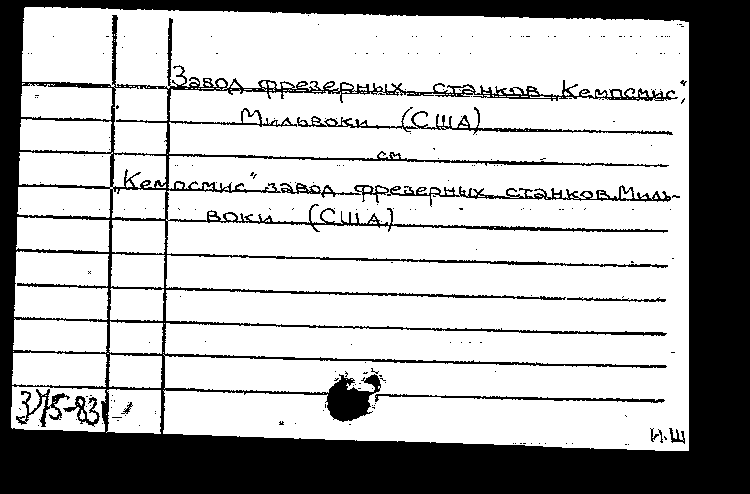 Завод фрезерных станков „Кемпсмис",
Мильвоки (США)
см.
„Кемпсмис" завод фрезерных станков, Миль-
воки (США)
375-83
И.Ш